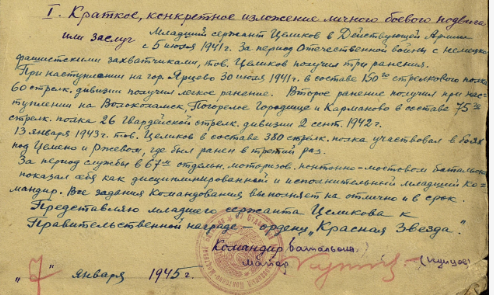 I. Краткое, конкретное изложение личного боевого подвига
или заслуг Младший сержант Целиков в Действующей Армии
с 5 июля 1941 г. За период Отечественной войны с немецко
фашистскими захватчиками, тов. Целиков получил три ранения.
При наступлении на гор. Ярцево 30 июля 1941 г. в составе стрелкового полка
60 стрелк. дивизии получил легкое ранение. Второе ранение получил при нас-
туплении на Волоколамск, Погорелое Городище и Карманово в составе 75
стрелк. полка 26 Гвардейской стрелк. дивизии 2 сент. 1942 г.
13 января 1943 г. тов. Целиков в составе 380 стрелк. полка участвовал в боях
под и Ржевом, где был ранен в третий раз.
За период службы в 67 отдельн. моториз. понтонно-мостовом батальоне
показал себя как дисциплинированный и исполнительный младший ко-
мандир. Все задания командования выполняет на отлично и в срок.
Представляю младшего сержанта Целикова к
Правительственной награде - ордену „Красная Звезда."
Командир батальона
майор
"7" января 1945 г.